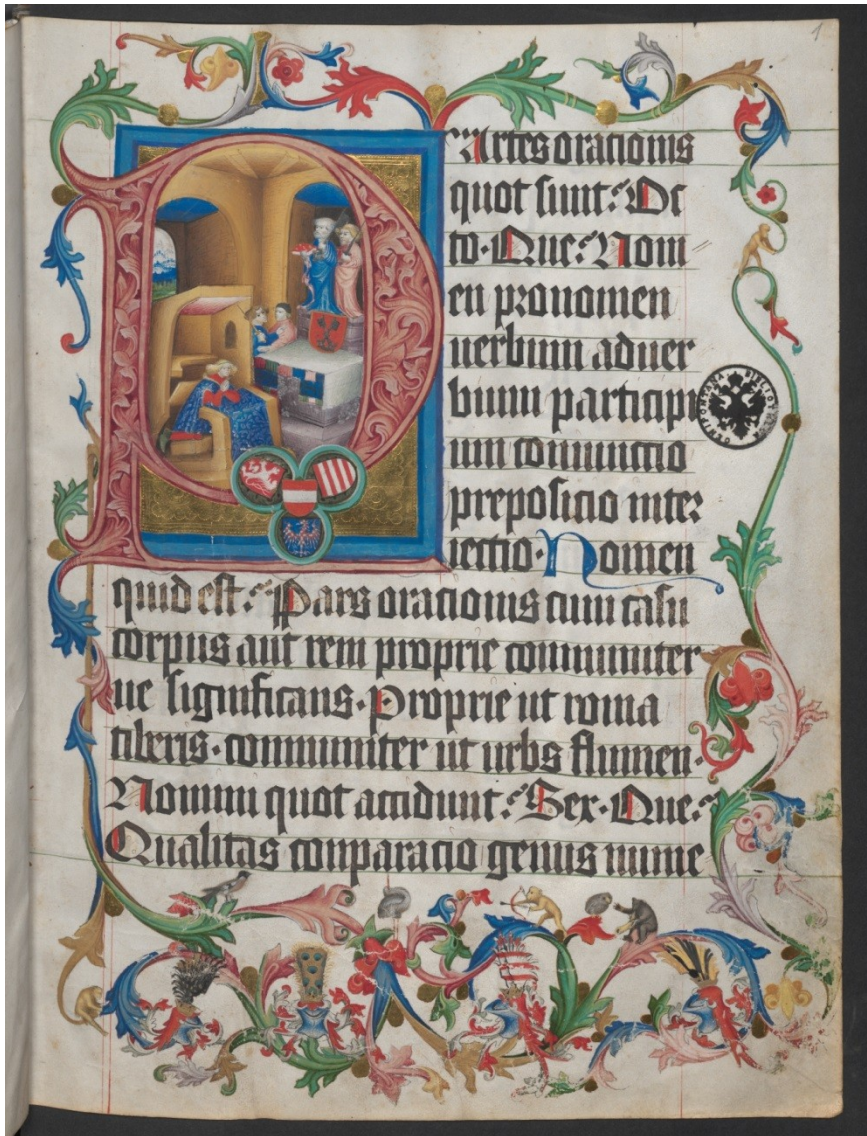 1
PArtes oracionis
quot sunt? Oc
to. Que? Nom
en pronomen
uerbum aduer
bium participi
um coniunctio
preposicio inter
iectio. Nomen
quid est? Pars oracionis cum casu
corpus aut rem proprie communiter
ue significans. Proprie ut roma
tiberis. communiter ut urbs flumen.
Nomini quot accidunt? Sex. Que?
Qualitas conparacio genus nume